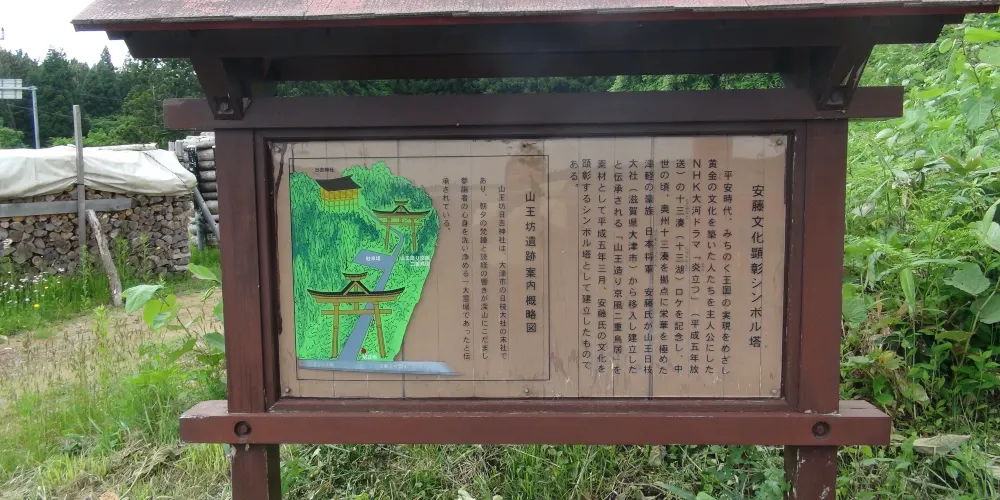 安藤文化顕彰シンボル塔
平安時代、みちのく王国の実現をめざし
黄金の文化を築いた人たちを主人公にした
NHK大河ドラマ『炎立つ』(平成五年放
送)の十三湊(十三湖)ロケを記念し、中
世の頃、奥州十三湊を拠点に栄華を極めた
津軽の豪族、日本将軍、安藤氏が山王日枝
大社(滋賀県大津市)から移入し建立した
と伝承される「山王造り京風二重鳥居」を
素材として平成五年三月、安藤氏の文化を
顕彰するシンボル塔として建立したもので
ある。
山王坊遺跡案内概略図
山王坊日吉神社は、大津市の日枝大社の末社で
あり、朝夕の梵鐘と読経の響きが深山にこだまし
参詣者の心身を洗い浄める一大霊場であったと伝
承されている。
駐車場